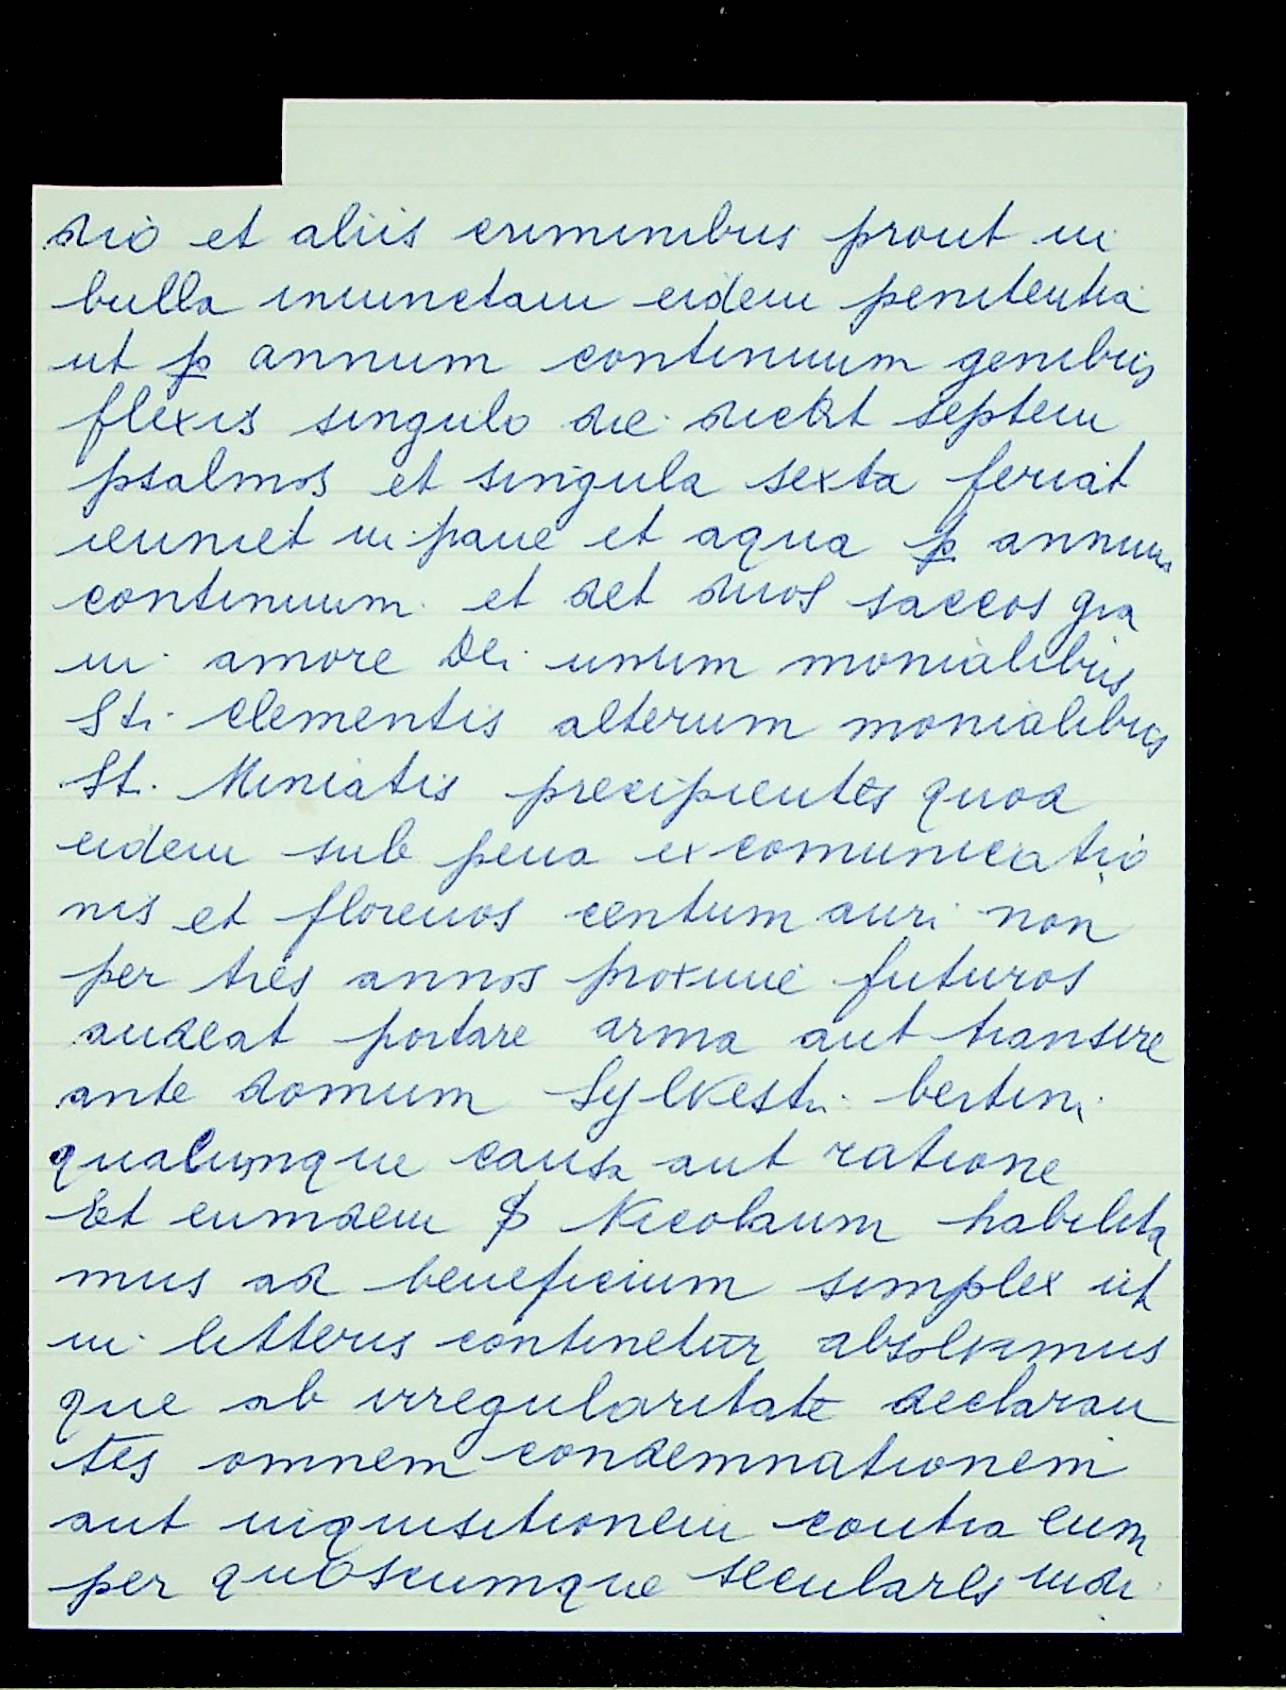 dio et aliis criminibus prout in
bulla iniunctam eidem penitentia
ut p annum continuum genibus
flexis singulo die dicat septem
psalmos et singula sexta feriat
ieuniet in pane et aqua p annum
continuum et det duos saccos gra
in amore Dei unum monialibus
Sti Clementis alterum monialibus
St. Miniatis precipientes quod
eidem sub pena excomunicatio
nis et florenos centum auri non
per tres annos proxime futuros
audeat portare arma aut transire
ante domum Sylvestri bertini
qualunque causa aut ratione
Et eumdem Nicolaum habilita
mus ad beneficium simplex ut
in litteris continetur absolvimus
que ab irregularitate declaran
tes omnem condemnationem
aut inquisitionem contra eum
per quoscumque seculares iudi